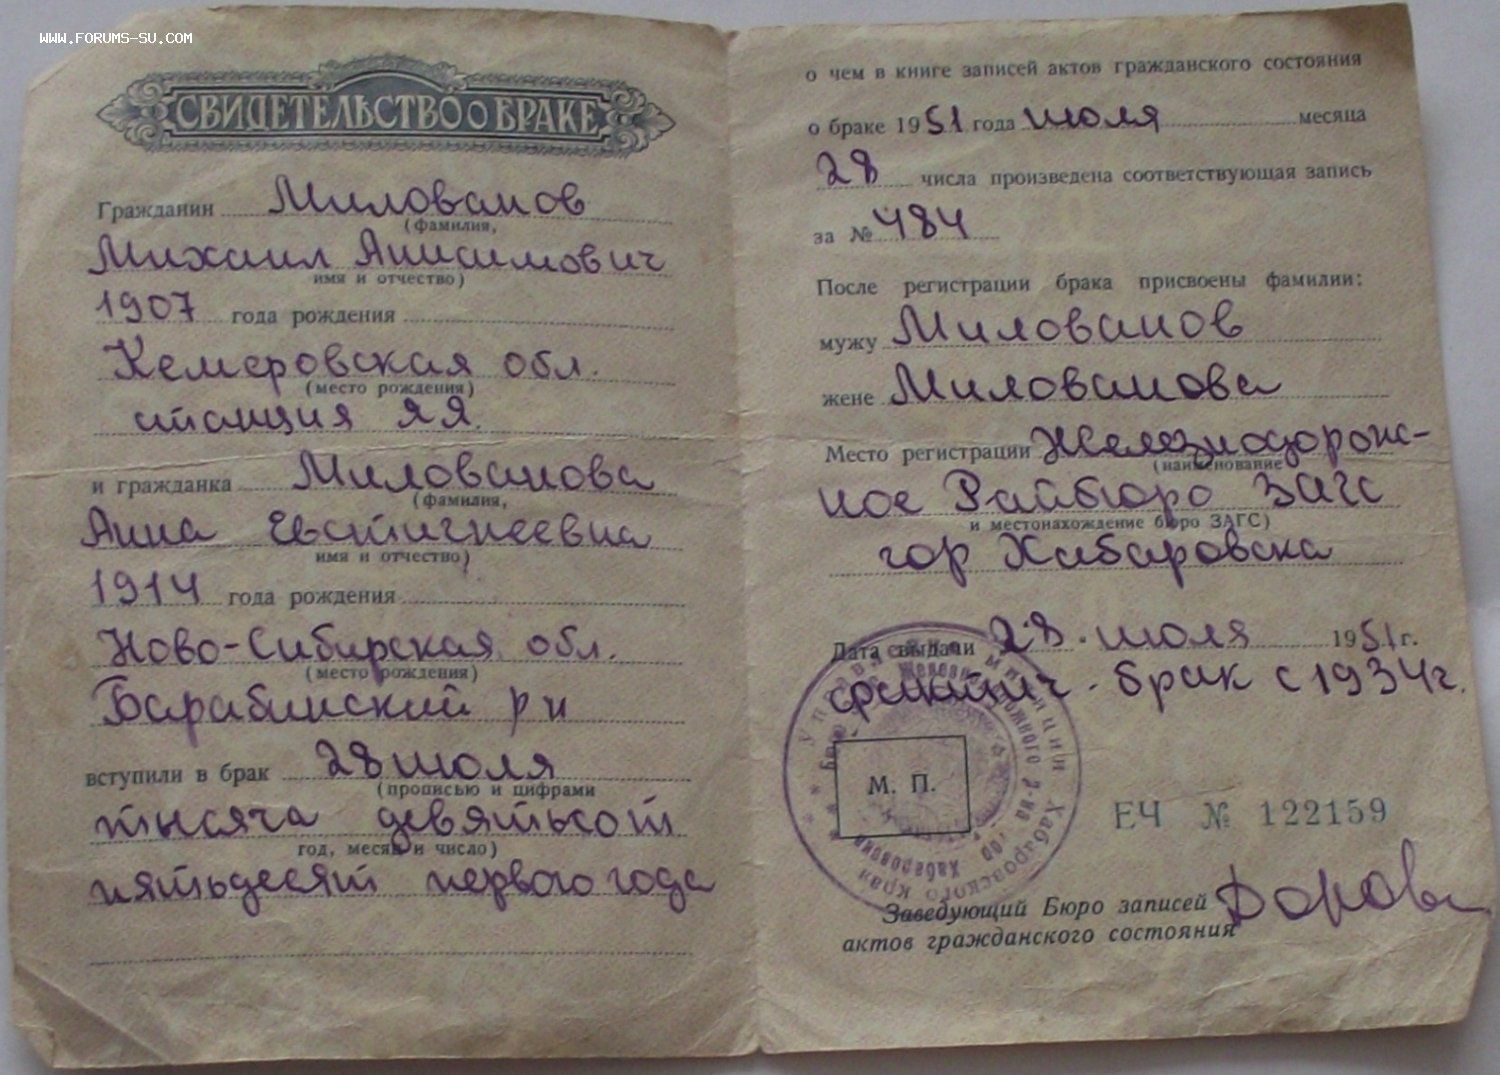 www.forums-su.com
СВИДЕТЕЛЬСТВО О БРАКЕ
Гражданин Миловамов
(фамилия,
Михаил Анисимович
имя и отчество)
1907 года рождения
Кемеровская обл.
(место рождения)
станция ЯЯ.
и гражданка Милованова
(фамилия,
Анна Евстигнеевна
имя и отчество)
1914 года рождения
Ново-Сибирская обл.
(место рождения)
Барабинский р н
вступили в брак 28 июля
(прописью и цифрами
тысяча девятьсот
год, месяц и число)
пятьдесят первого года
о чем в книге записей актов гражданского состояния
о браке 1951 года июля месяца
28 числа произведена соответствующая запись
за № 484
После регистрации брака присвоены фамилии:
мужу Милованов
жене Милованова
Место регистрации Железнодорож-
(наименование
ное Райбюро ЗАГС
и местонахождение бюро ЗАГС)
гор Хабаровска
Дата выдачи 28 июля 1951 г.
фактич. брак с 1934 г.
Управление милиции Хабаровского края
Железнодорожного р-на гор Хабаровска
М. П.
ЕЧ № 122159
Заведующий Бюро записей
актов гражданского состояния